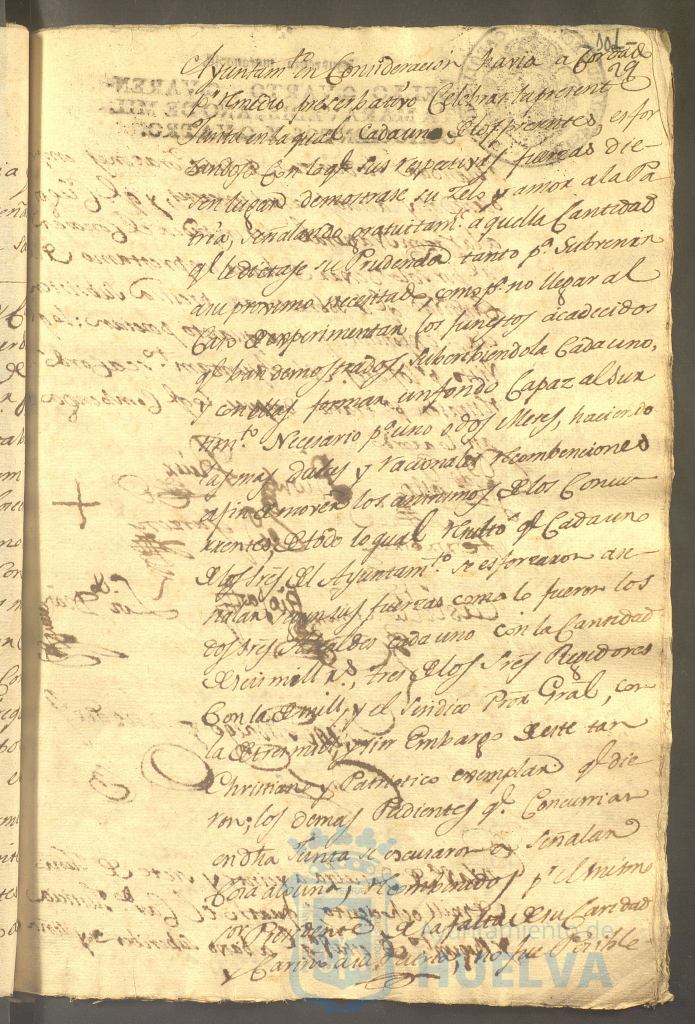 Ayuntamto. en Consideracion havia acordado
29
pr. remedio preserbativo Celebrar la presente
Junta en la qual Cada uno de los presentes, esfor
zandose con lo qe. sus respectivas fuerzas die-
sen lugar demostrase su Zelo y amor a la Pa
tria, señalando gratuitamte. aquella Cantidad
qe. le dictase su Prudencia tanto pa. Subvenir
a su proximo necesitado, como pa. no llegar al
Caso de experimentar los funestos acaecidos
qe. han demostrados, Subscribiendola Cada uno,
y con ellas formar un fondo Capaz al Sur
timto. Necesario pa. uno o dos Meses, haciendo
las mas dulces y racionales recombenciones
a fin de mover los animos de los Concu
rrentes, de todo lo qual resulto qe. Cada uno
de los Sres. del Ayuntamto. se esforzaron
segun sus fuerzas como lo fueron los
dos Sres. Alcaldes cada uno con la Cantidad
de seis mill rs., tres de los Sres. Regidores
Con la de mill, y el Sindico Pror. Gral, con
la de tres mill, y sin Embargo de este tan
Christiano y Patriotico exemplar qe. die-
ron; los demas Pudientes qe. Concurrieron
en dha Junta se escusaron a Señalar
Cosa alguna, y recombenidos pr. el mismo
Sor. Presidente de la falta de su Caridad
y
no fue Posible
Ayuntamiento de
HUELVA